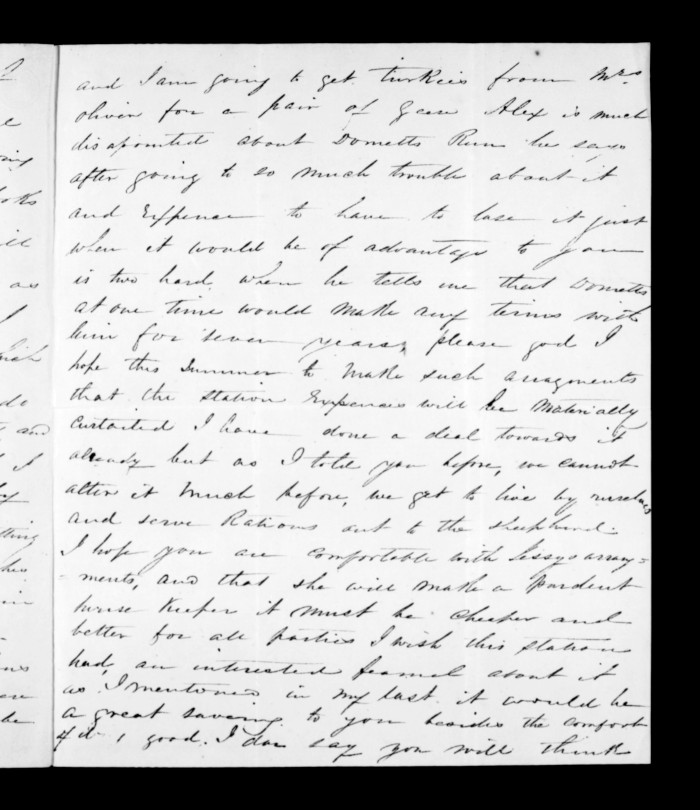 and I am going to get turkies from Mrs
oliver for a pair of Geese Alex is much
disapointed about Dometts Run he says
after going to so much trouble about it
and Expence to have to lose it just
when it would be of advantage to you
is two hard, when he tells me that Dometts
at one time would make any terms with
him for seven years, please god I
hope this Summer to make such arragments
that the station Expences will be Materially
Curtailed I have done a deal towards it
already but as I told you before, we cannot
alter it much before, we get to live by ourselves
and serve Rations out to the shepherd.
I hope you are comfortable with Jessys arrang=
=ments, and that she will make a Prudent
house Keeper it must be cheeper and
better for all parties I wish this station
had, an interested feamel about it
as I mentioned in my last. it would be
a great savering to you besides the comfort
of it, good. I dar say you will think